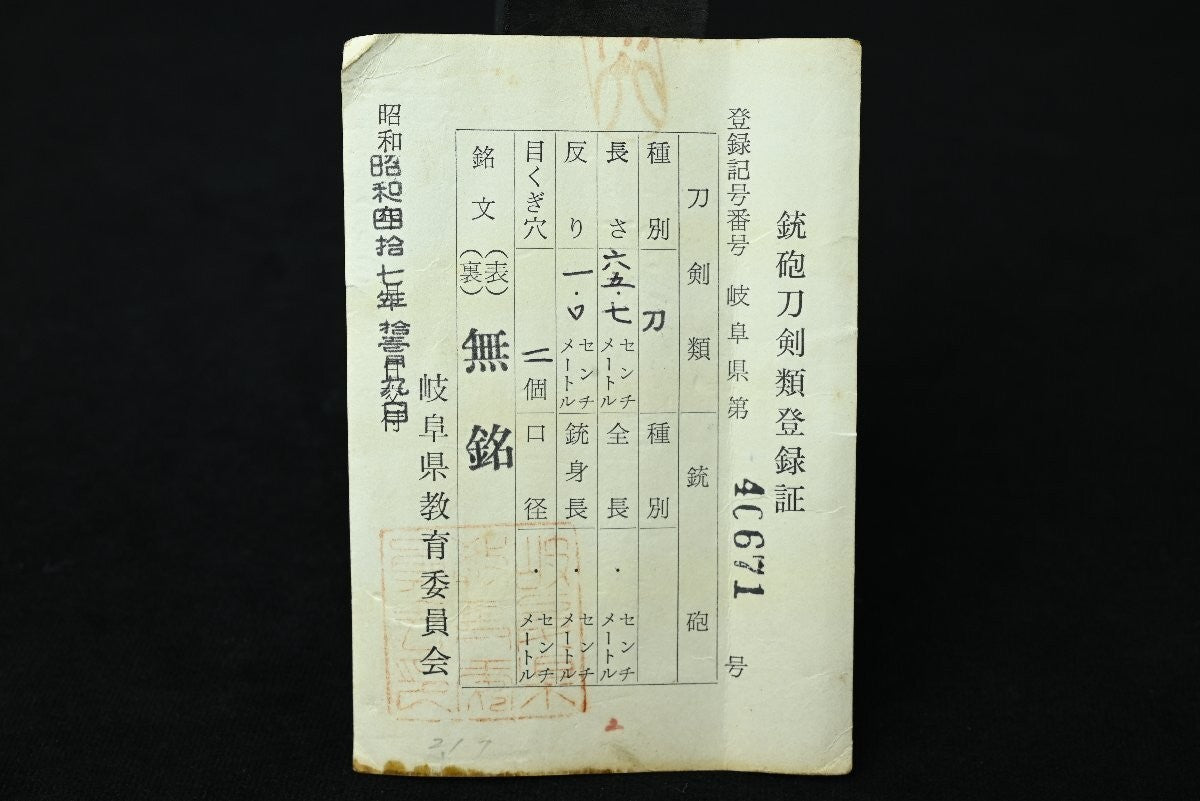 銃砲刀剣類登録証
登録記号番号 岐阜県第 40671 号
刀剣類 銃砲
種別 刀 種別
長さ 六五・七 センチメートル 全長 ・ センチメートル
反り 一・〇 センチメートル 銃身長 ・ センチメートル
目くぎ穴 二個 口径 ・ センチメートル
銘文 (表) (裏) 無銘
昭和 昭和四拾七年 拾壱月九日 交付
岐阜県教育委員会
217
2